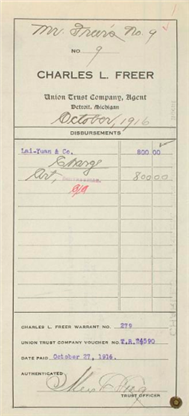 Mr. Freer's No. 9
NO. 9
CHARLES L. FREER
Union Trust Company, Agent
Detroit, Michigan
October, 1916
DISBURSEMENTS
Lai-Yuan & Co. 800 00
Charge
Art, 800 00
CHARLES L. FREER WARRANT NO. 279
UNION TRUST COMPANY VOUCHER NO.
DATE PAID October 27, 1916.
AUTHENTICATED
TRUST OFFICER